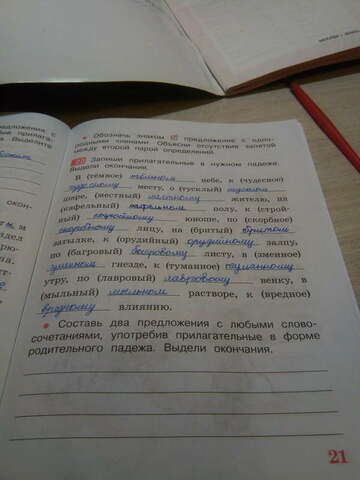 • Обозначь знаком предложение с одно-
родными членами. Объясни отсутствие запятой
между второй парой определений.
Запиши прилагательные в нужном падеже.
Выдели окончания.
В (тёмное) тёмном небе, к (чудесное)
чудесному месту, о (тусклый) тусклом
шаре, (местный) местному жителю, на
(кафельный) кафельном полу, к (строй-
ный) стройному юноше, по (скорбное)
скорбному лицу, на (бритый) бритом
затылке, к (орудийный) орудийному залпу,
по (багровый) багровому листу, в (змеиное)
змеином гнезде, к (туманное) туманному
утру, по (лавровый) лавровому венку, в
(мыльный) мыльном растворе, к (вредное)
вредному влиянию.
• Составь два предложения с любыми слово-
сочетаниями, употребив прилагательные в форме
родительного падежа. Выдели окончания.
21